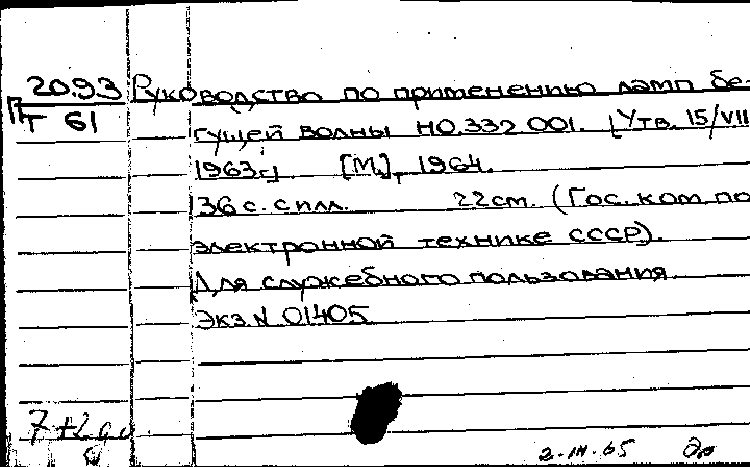 20.93 Руководство по применению ламп бе-
П
Т 61 гущей волны НО.332 001. [Утв. 15/VII
1963г.] [М.], 1964.
136 с. с илл. 22 см. (Гос. ком по
электронной технике СССР).
Для служебного пользования.
Экз N 01405
2-III-65